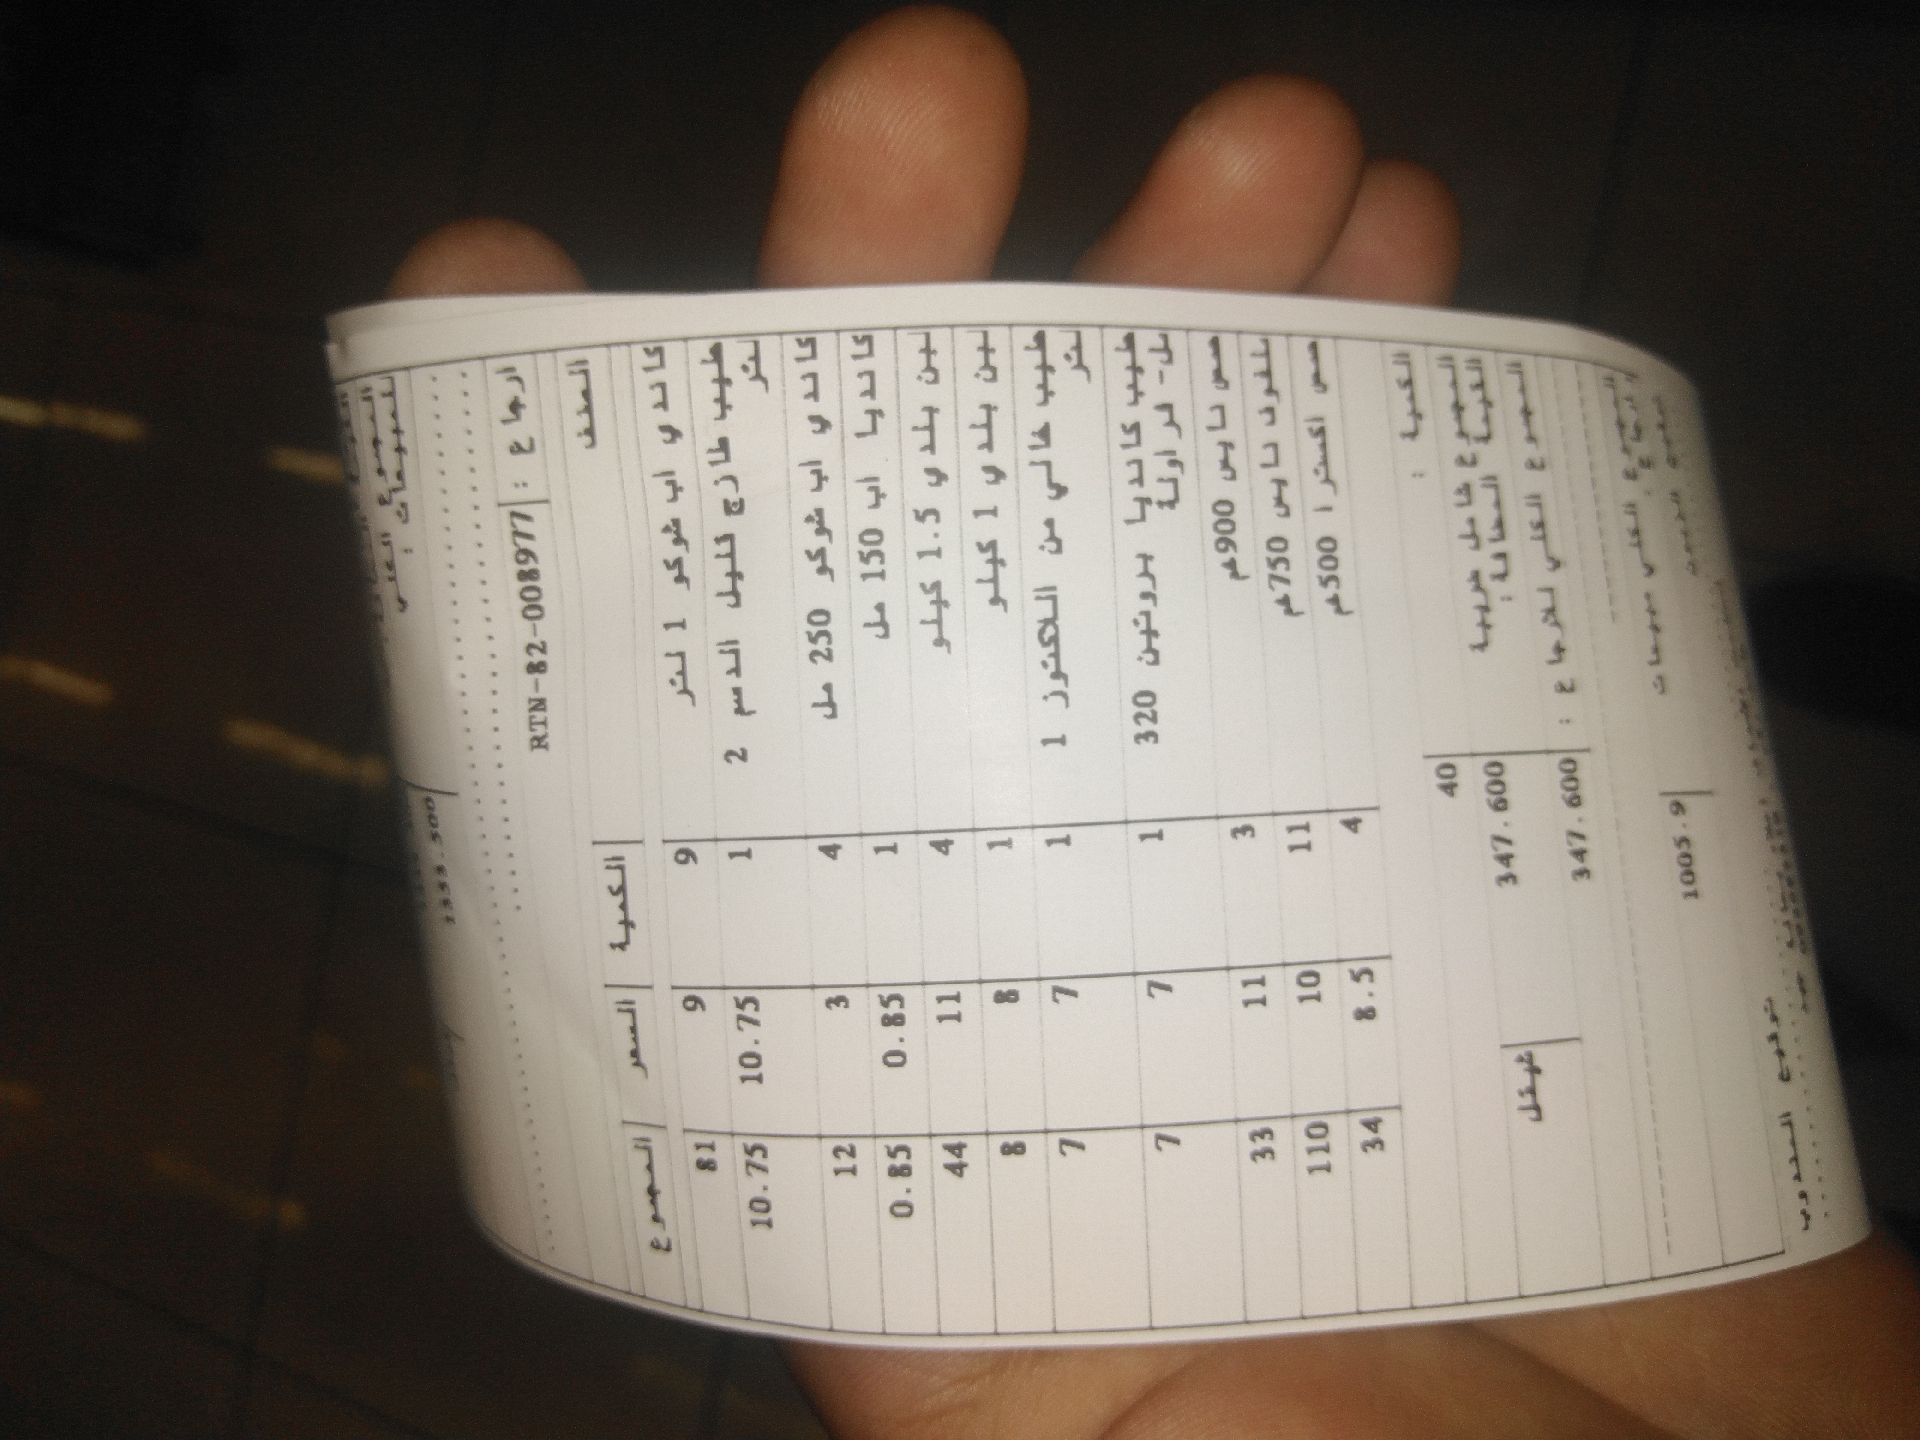 المجموع الكلي
للمبيعات :
1353.500
ارجاع : RTN-82-008977
الصنف الكمية السعر المجموع
كاندي اب شوكو 1 لتر 9 9 81
حليب طازج قليل الدسم 2 1 10.75 10.75
لتر
كاندي اب شوكو 250 مل 4 3 12
كانديا اب 150 مل 1 0.85 0.85
لبن بلدي 1.5 كيلو 4 11 44
لبن بلدي 1 كيلو 1 8 8
حليب خالي من اللاكتوز 1 1 7 7
لتر
حليب كانديا بروتين 320 1 7 7
مل- فراولة
حمص نايس 900غم 3 11 33
نايس 750غم 11 10 110
حمص اكسترا 500غم 4 8.5 34
الكمية : 40
المجموع شامل ضريبة 347.600 شيقل
القيمة المضافة :
المجموع الكلي للارجاع : 347.600
المجموع الكلي مبيعات 1005.9
توقيع المندوب